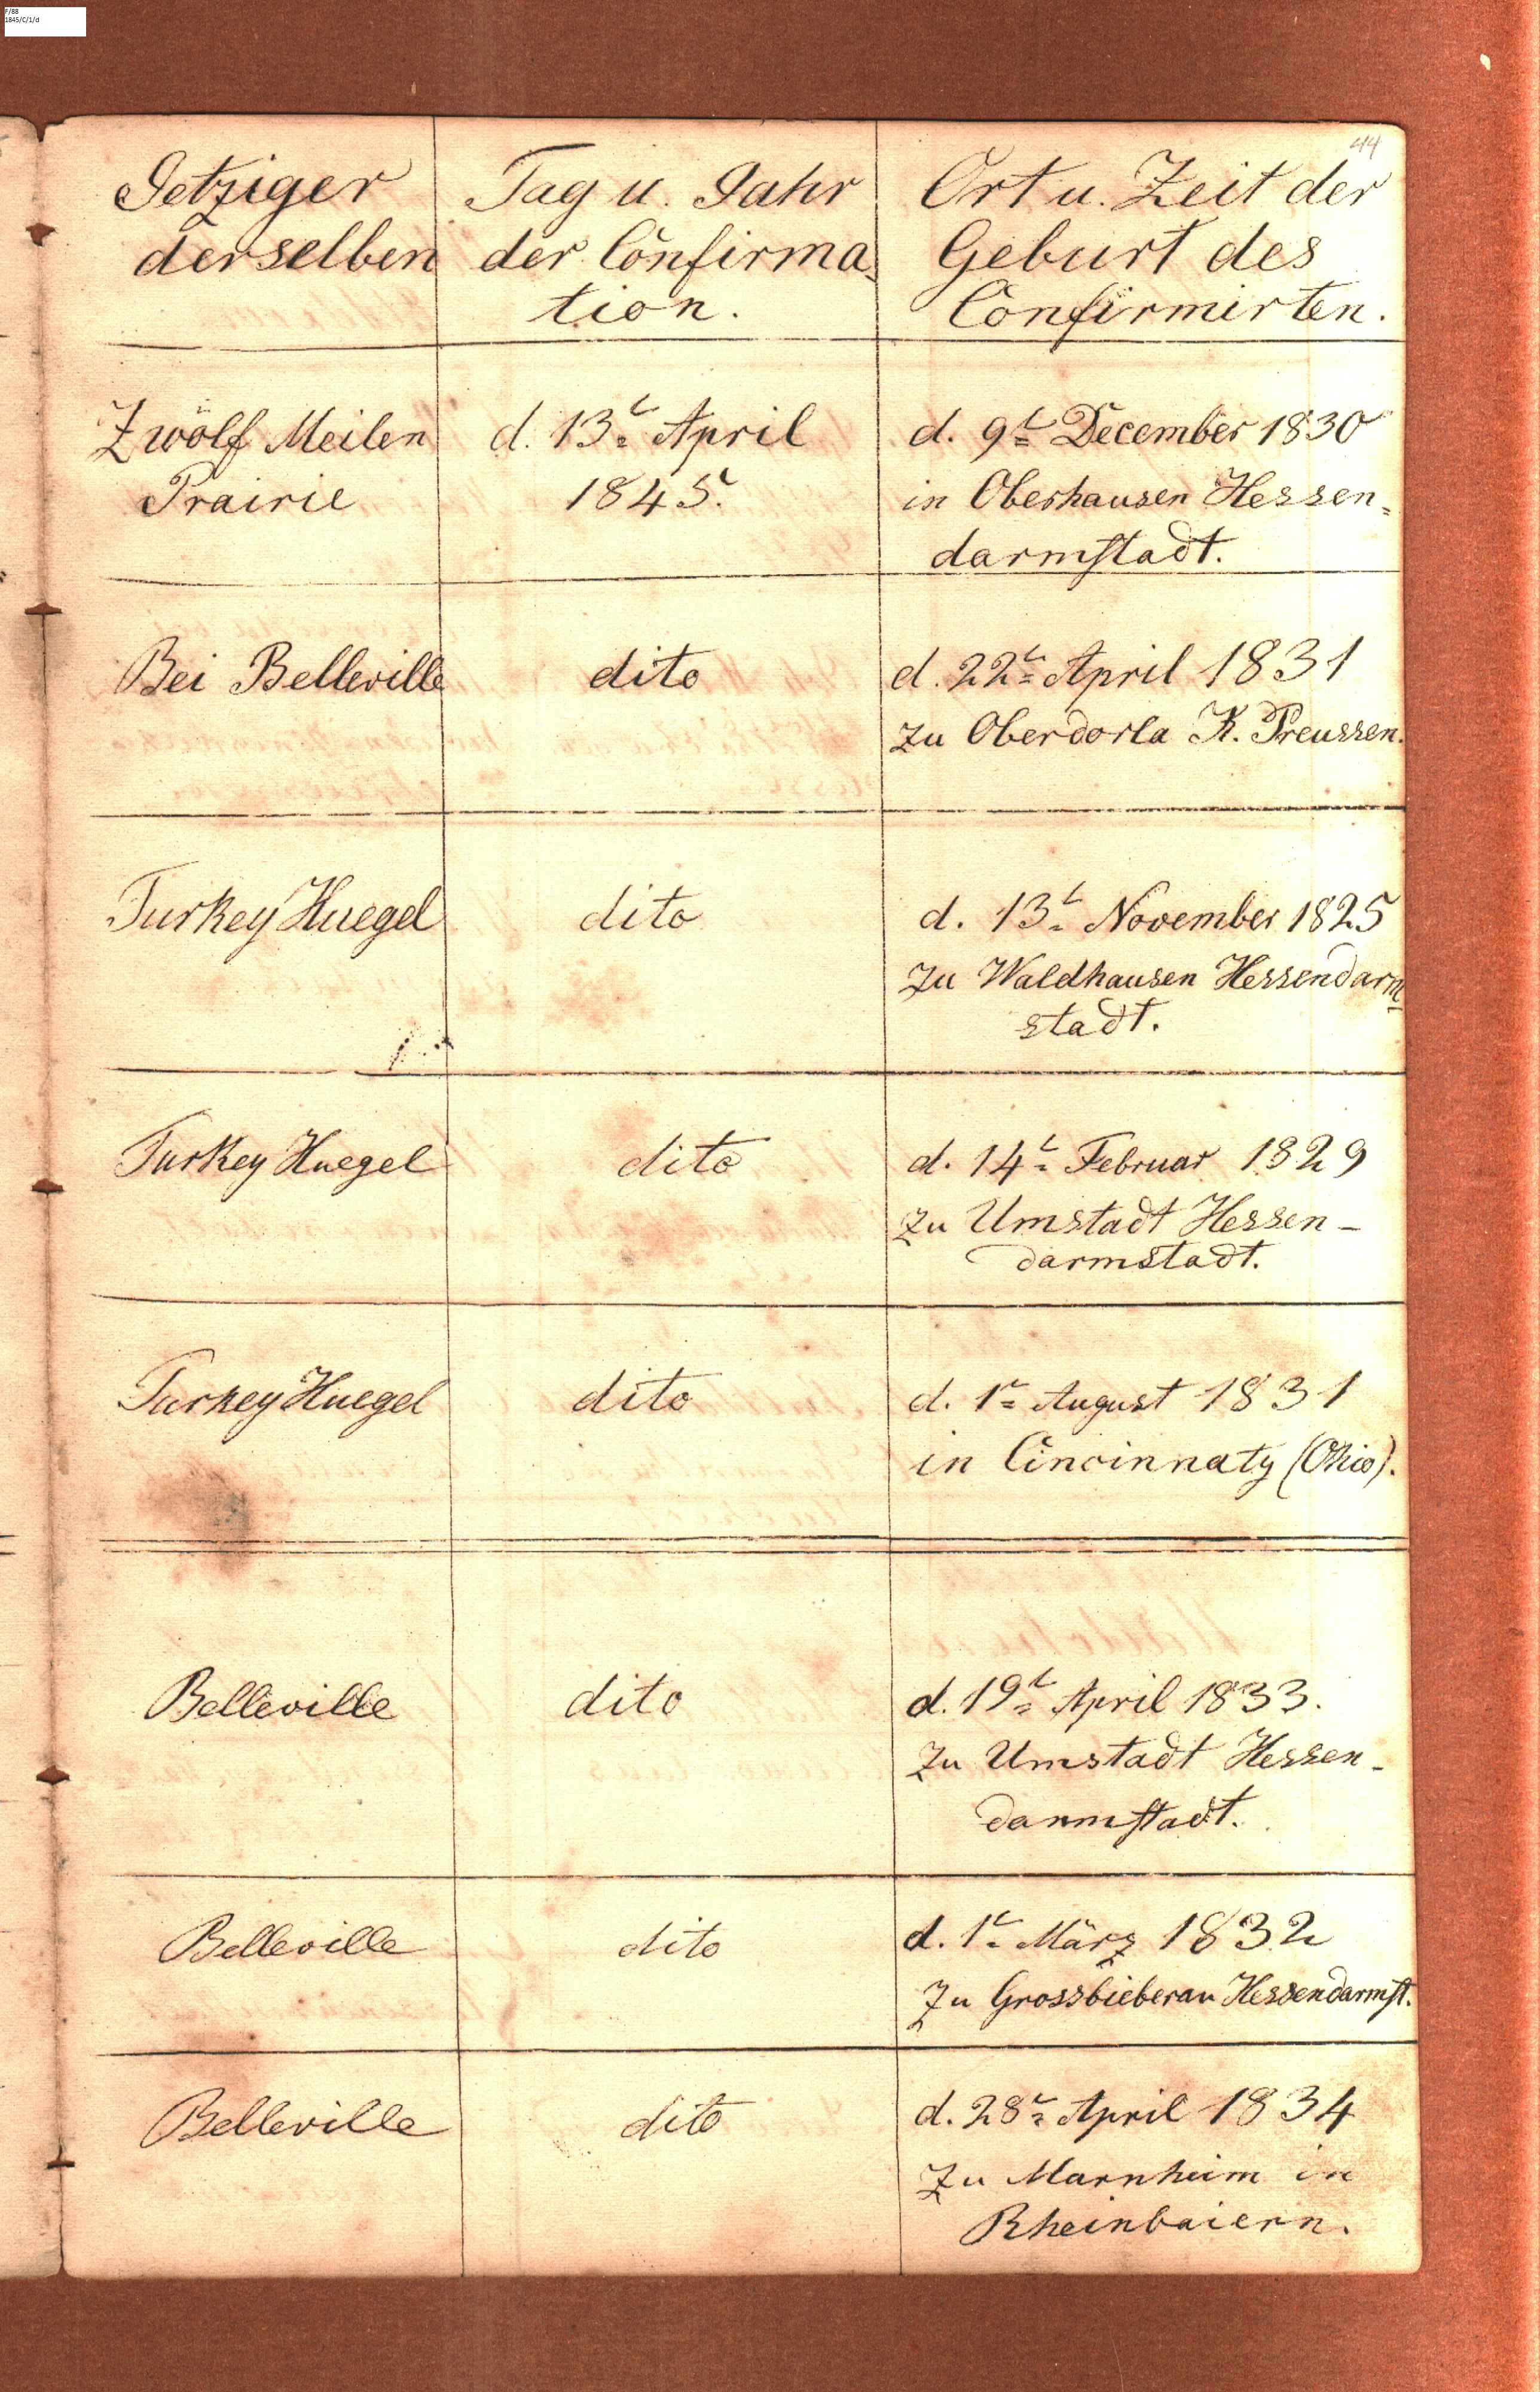 F/88
1845/C/1/d
44
Jetziger
derselben
Tag u. Jahr
der Confirma-
tion.
Ort u. Zeit der
Geburt des
Confirmirten.
Zwölf Meilen
Prairie
d. 13t April
1845.
d. 9t December 1830
in Oberhausen Hessen-
darmstadt.
Bei Belleville
dito
d. 22t April 1831
zu Oberdorla K. Preussen.
Turkey Huegel
dito
d. 13t November 1825
zu Waldhausen Hessendarm
stadt.
Turkey Huegel
dito
d. 14t Februar 1829
zu Umstadt Hessen-
darmstadt.
Turkey Huegel
dito
d. 1t August 1831
in Cincinnaty (Ohio).
Belleville
dito
d. 19t April 1833.
zu Umstadt Hessen-
darmstadt.
Belleville
dito
d. 1t März 1832
zu Grossbieberau Hessendarmst.
Belleville
dito
d. 28t April 1834
zu Marnheim in
Rheinbaiern.